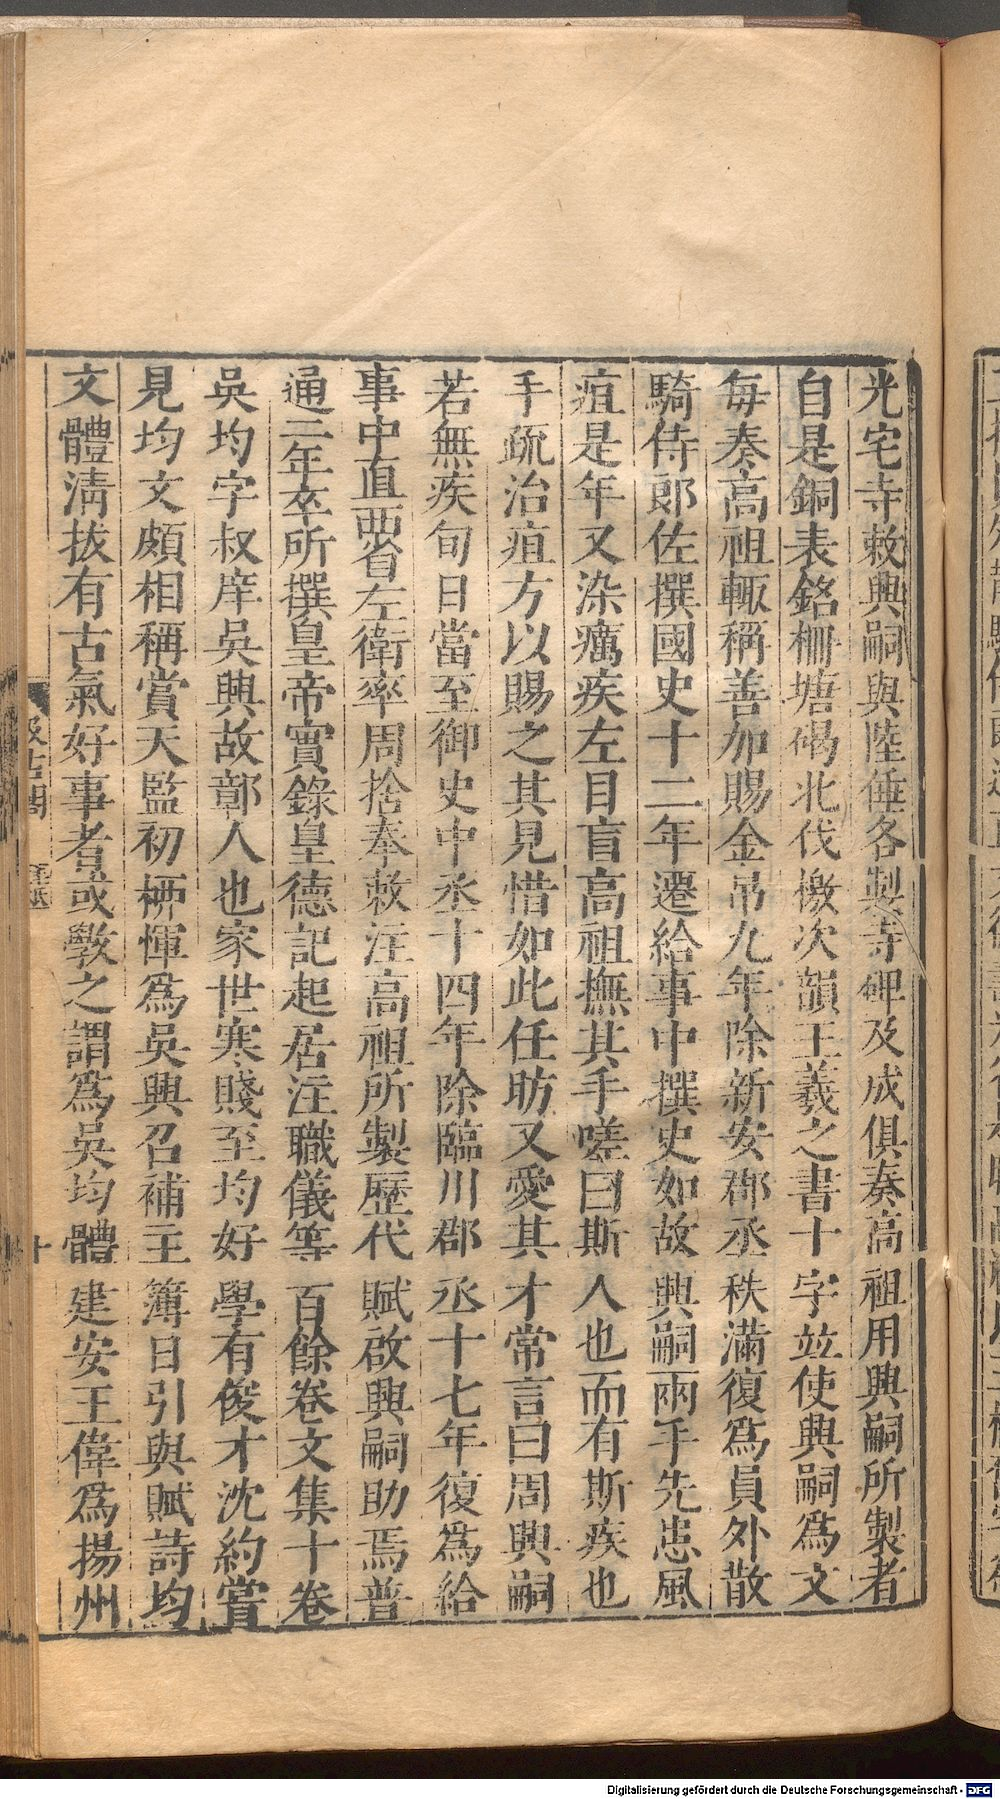 光宅寺敕興嗣與陸倕各製寺碑及成俱奏高祖用興嗣所製者
自是銅表銘柵塘碣北伐檄次韻王羲之書十字竝使興嗣爲文
每奏高祖輒稱善加賜金帛九年除新安郡丞秩滿復爲員外散
騎侍郎佐撰國史十二年遷給事中撰史如故興嗣兩手先患風
疽是年又染癘疾左目盲高祖撫其手嗟曰斯人也而有斯疾也
手疏治疽方以賜之其見惜如此任昉又愛其才常言曰周興嗣
若無疾旬日當至御史中丞十四年除臨川郡丞十七年復爲給
事中直西省左衛率周捨奉敕注高祖所製歷代賦啟興嗣助焉普
通二年卒所撰皇帝實錄皇德記起居注職儀等百餘卷文集十卷
吳均字叔庠吳興故鄣人也家世寒賤至均好學有俊才沈約嘗
見均文頗相稱賞天監初柳惲爲吳興召補主簿日引與賦詩均
文體淸拔有古氣好事者或斆之謂爲吳均體建安王偉爲揚州
汲古閣
十
Digitalisierung gefördert durch die Deutsche Forschungsgemeinschaft - DFG